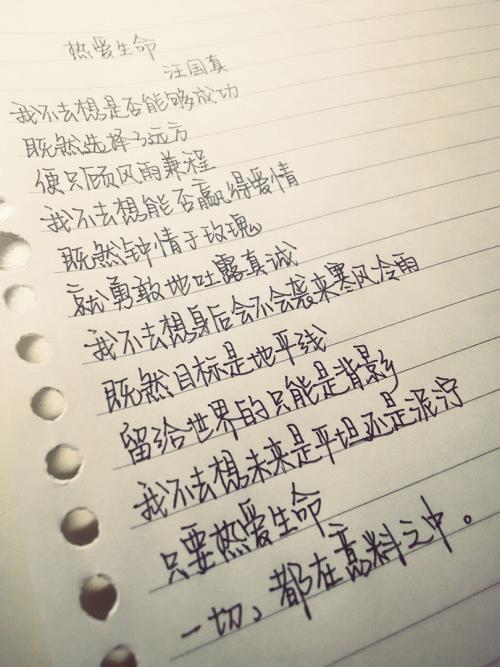 热爱生命
汪国真
我不去想是否能够成功
既然选择了远方
便只顾风雨兼程
我不去想能否赢得爱情
既然钟情于玫瑰
就勇敢地吐露真诚
我不去想身后会不会袭来寒风冷雨
既然目标是地平线
留给世界的只能是背影
我不去想未来是平坦还是泥泞
只要热爱生命
一切，都在意料之中。